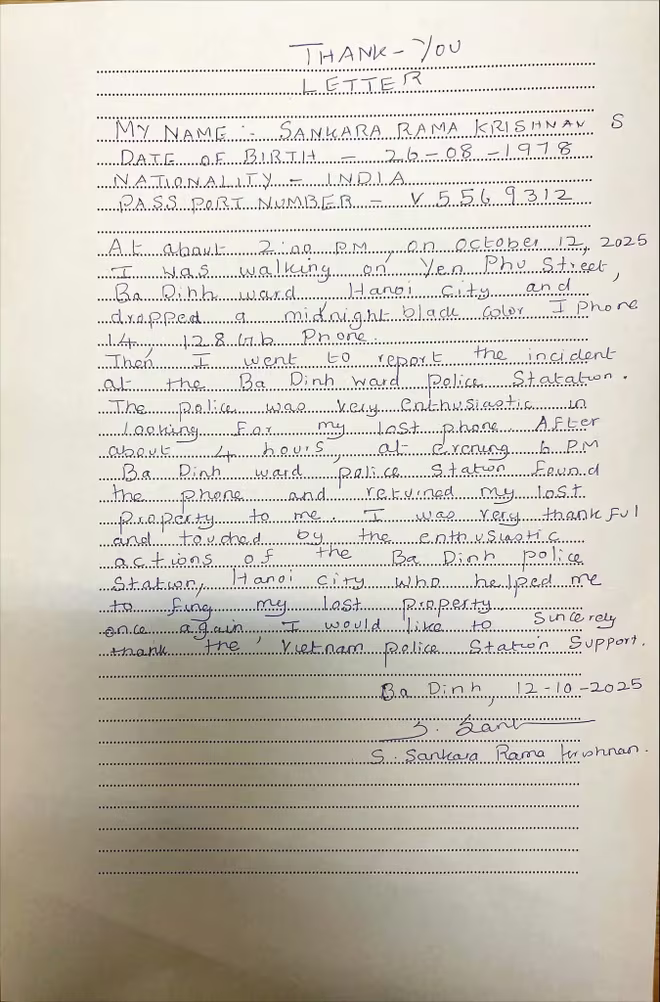 THANK-YOU
LETTER
MY NAME :- SANKARA RAMA KRISHNAN S
DATE OF BIRTH - 26-08-1978
NATIONALITY - INDIA
PASS PORT NUMBER - V5569312
At about 2:00 PM, on October 12, 2025
I was walking on Yen Phu Street,
Ba Dinh ward, Hanoi city and
dropped a midnight black color I Phone
14, 128 Gb Phone.
Then I went to report the incident
at the Ba Dinh ward police Statation.
The police was very enthusiastic in
looking for my lost phone. After
about 4 hours, at evening 6 PM
Ba Dinh ward police station found
the phone and returned my lost
property to me. I was very thankful
and touched by the enthusiastic
actions of the Ba Dinh police
Station, Hanoi city who helped me
to fing my lost property
once again, I would like to sincerely
thank the Vietnam police Station Support.
Ba Dinh, 12-10-2025
S. Sankara Rama Krishnan.